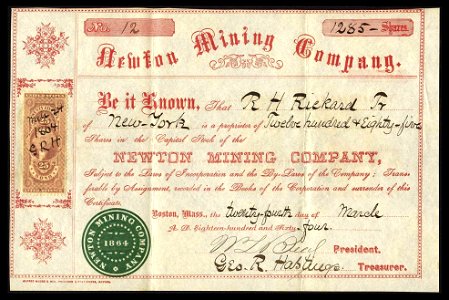 No. 12
1285 - Shares.
Newton Mining Company.
Be it Known, That R H Rickard Tr
of New-York is a proprietor of Twelve hundred & Eighty-five
Shares in the Capital Stock of the
NEWTON MINING COMPANY,
Subject to the Laws of Incorporation and the By-Laws of the Company; Trans-
ferable by Assignment, recorded in the Books of the Corporation and surrender of this
Certificate.
Boston, Mass., the twenty-fourth day of March
A. D. Eighteen-hundred and Sixty-four.
President.
Geo. R. Hastings Treasurer.
Mch 24
1864
G R H
25
NEWTON MINING COMPANY
1864